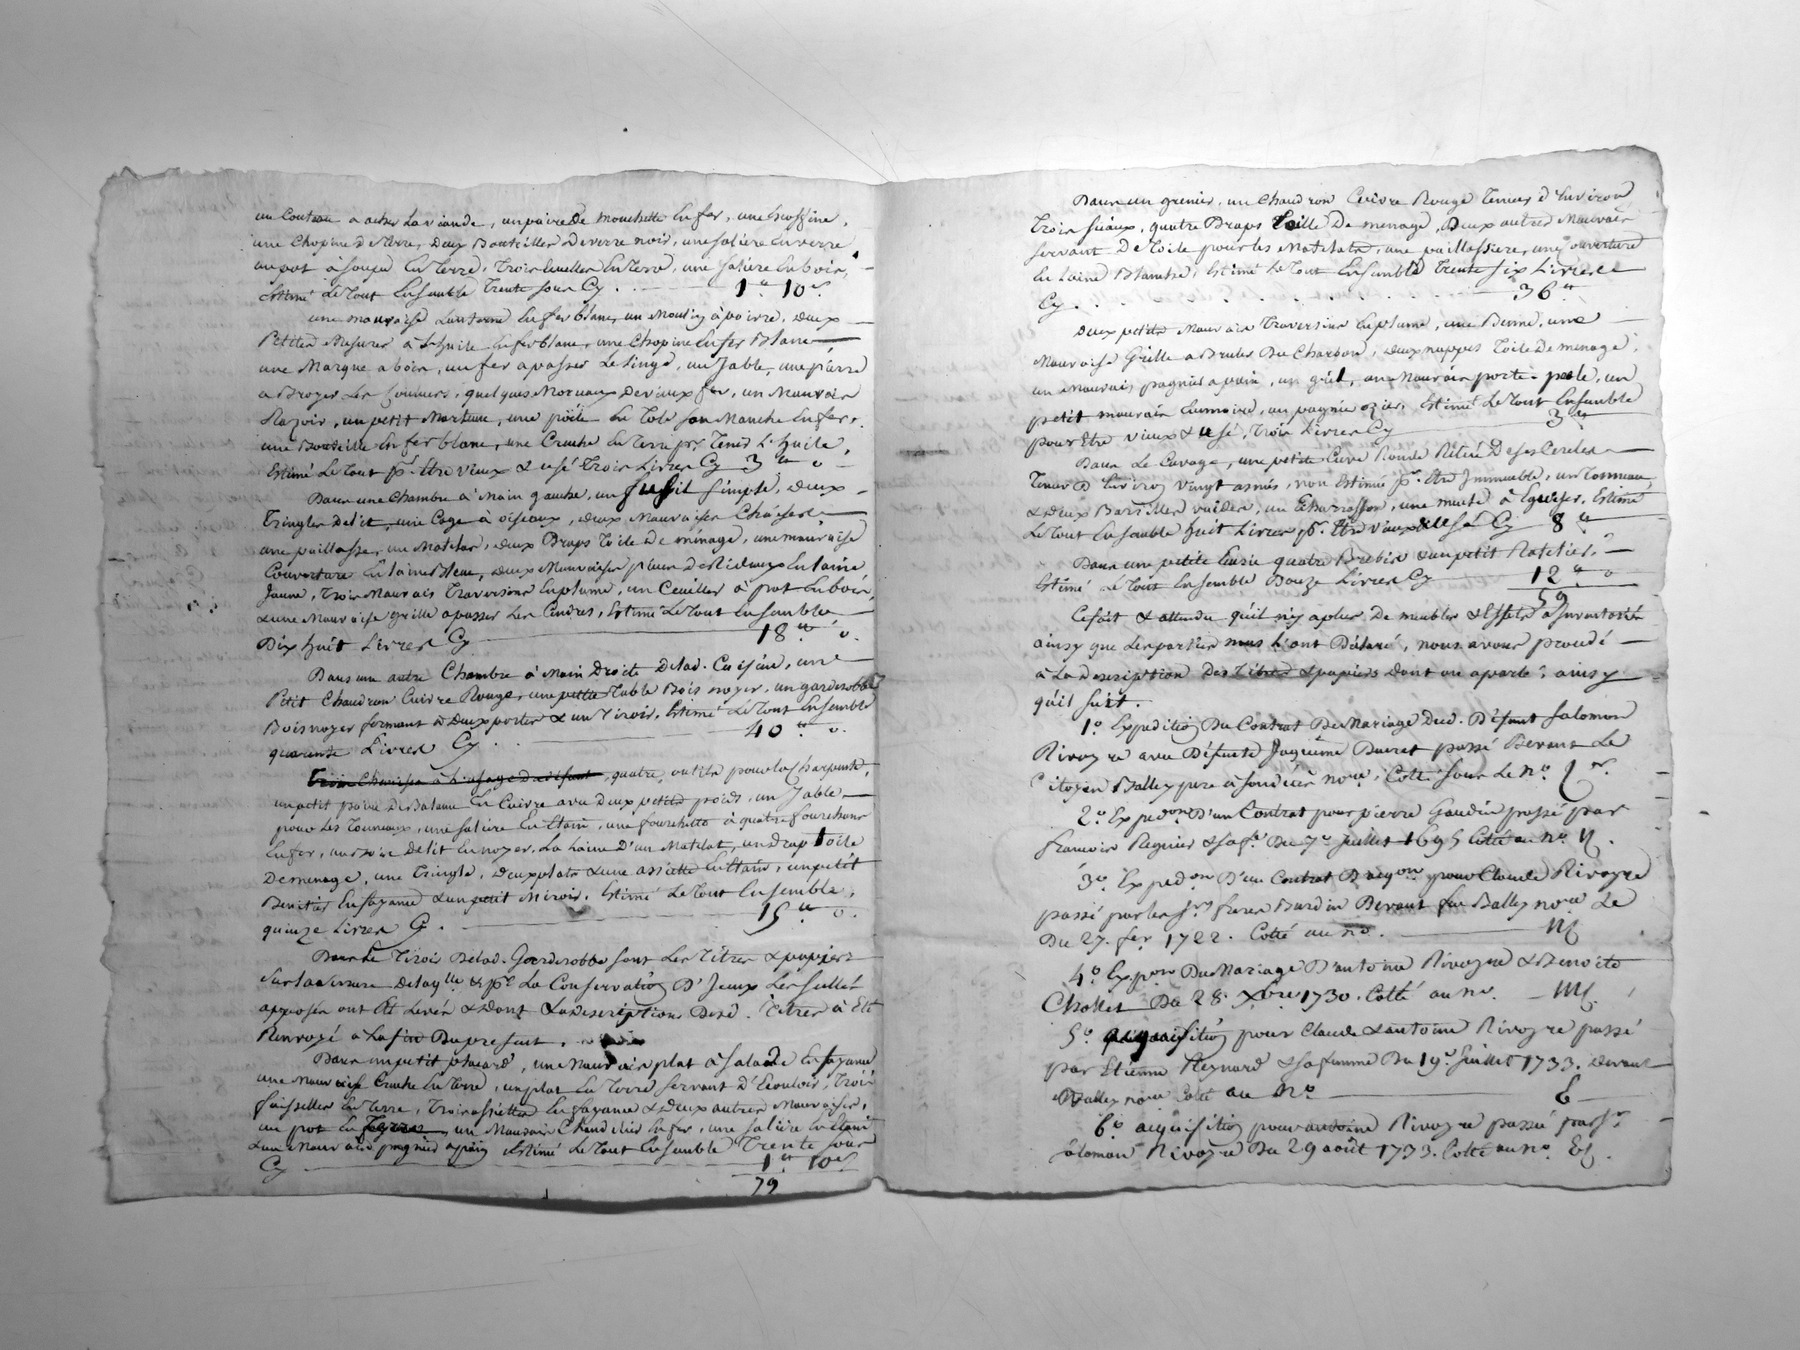 un Couteau a acher La viande, un paire De mouchette En fer, une
une Chopine de Terre, Deux Bouteilles De verre noir, une salière En verre
un pot à soupe En Terre, Trois Ecuelles En Terre, une salière En bois,
Estimé Le Tout Ensemble Trente sous Cy 1 ʰ 10 s.
une mauvaise Lanterne En fer blanc, un Moulin à poivre, deux
Petites Mesures à L'huile En fer blanc, une Chopine En fer Blanc
une Marque a bois, un fer a passer Le Linge, un Jable, une pierre
a Broyer Les Couleurs, quelques Morceaux De vieux fer, un Mauvais
Rasoir, un petit Marteau, une poële En Tole son Manche En fer,
une Bouteille En fer blanc, une Cruche En Terre pr. Tenir L'huile,
Estimé Le Tout pr. Etre vieux & usé Trois Livres Cy 3 ʰ o
Dans une Chambre à Main gauche, un fusil simple, deux
Tringles De lit, une Cage à oiseaux, deux Mauvaises Chaises
une paillasse, un Matelas, deux Draps Toile De menage, une mauvaise
Couverture En laine Bleue, deux Mauvaises pieces de Rideaux En laine
Jaune, Trois Mauvais Traversins En plume, un Ceuiller à pot En bois,
& une Mauvaise grille a passer Les Cendres, Estimé Le Tout Ensemble
Dix huit Livres Cy 18 ʰ o.
Dans une autre Chambre à Main Droite De lad. Cuisine, une
Petit Chaudron Cuivre Rouge, une petite Table Bois noyer, un garderobbe
Bois noyer fermant à Deux portes & un Tiroir, Estimé Le Tout Ensemble
quarante Livres Cy 40 ʰ o.
Trois Chemises à L'usage Du defunt, quatre outils pour La Charpente,
un petit paire De Balance En Cuivre avec Deux petits poids, un Jable,
pour Les Tonneaux, une salière En Etain, une fourchette à quatre fourchons
En fer, un De lit En noyer, La Laine D'un Matelat, un Drap Toile
De menage, une Tringle, Deux plats & une assiette En Etain, un petit
Benitier En fayance & un petit Miroir, Estimé Le Tout Ensemble,
quinze Livres Cy 15 ʰ o.
Dans Le Tiroir De lad. Garderobbe sont Les Titres & papiers
sur La serrure De laqlle & pr. La Conservation D'Jceux Les scellés
apposés ont Eté Levés & Dont La Description Desd. Titres à Eté
Renvoyé à La fin Du present.
Dans un petit placard, une Mauvais plat à salade En fayance
une Mauvaise Cruche En Terre, un plat En Terre servant D'Ecouloir, Trois
faisselles En Terre, Trois assiettes En fayance & Deux autres Mauvaises,
un pot En Terre, un Mauvais Chandelier En fer, une salière En Etain
& un Mauvais pagnier a pain Estimé Le Tout Ensemble Trente sous
Cy 1 ʰ 10 s
79
Dans un grenier, un Chaudron Cuivre Rouge Tenant D'Environ
Trois seaux, quatre Draps Toille De menage, Deux autres Mauvais
servant De Toile pour Les Matelats, une paillassiere, une Couverture
En Laine Blanche, Estimé Le Tout Ensemble Trente six Livres
Cy 36 ʰ
Deux petits Mauvais Traversins En plume, une Benne, une
Mauvaise Grille a Bruler Du Charbon, deux nappes Toile De menage,
un Mauvais pagnier a pain, un gril, un Mauvais porte-poele, un
petit mauvais, un pagnié ozier, Estimé Le Tout Ensemble
pour Etre vieux & usé, Trois Livres Cy 3 ʰ
Dans Le Cuvage, une petite Cuve Ronde Reliée De ses Cercles
Tenant D'Environ vingt asnés, non Estimée pr. Etre Jmmeuble, un Tonneau
& Deux Barilles vuides, un Echarasson, une meule à Eguiser, Estimé
Le Tout Ensemble huit Livres pr. Etre vieux & usé Cy 8 ʰ
Dans une petite Ecurie quatre Brebis & un petit Ratelier,
Estimé Le Tout Ensemble Douze Livres Cy 12 ʰ o
59
Ce fait & attendu qu'il n'y a plus De meubles & Effets à Jnventorier
ainsy que Les parties nous L'ont Déclaré, nous avons procedé
à La Description Des Titres & papiers Dont on a parlé, ainsy
qu'il suit.
1.° Expedition Du Contrat De Mariage Dud. Défunt Salomon
Rivoyre avec Défunte Jaquême Ducret passé Devant Le
Citoyen Balley pere à nore, Cotté sous Le n.° I er.
2.° Expedon D'un Contrat pour pierre Gaudin passé par
francois Regnier & sa fe. Du 7e Juillet 1695 Cotté au n.° IJ.
3.° Expedon D'un Contrat pour Claude Rivoyre
passé par Les srs freres Burdin Devant feu Balley nore Le
Du 27. fer 1722. Cotté au n.° IIJ.
4.° Expon Du Mariage D'antoine Rivoyre & Benoite
Chollet Du 28. Xbre 1730. Cotté au n.° IIIJ.
5.° acquisition pour Claude & antoine Rivoyre passé
par Etienne Reynard & sa femme Du 19e Juillet 1733. devant
Balley nore Cotté au N.° 5
6.° acquisition pour antoine Rivoyre passé par sr
salomon Rivoyre Du 29 août 1733. Cotté au n.° 6.